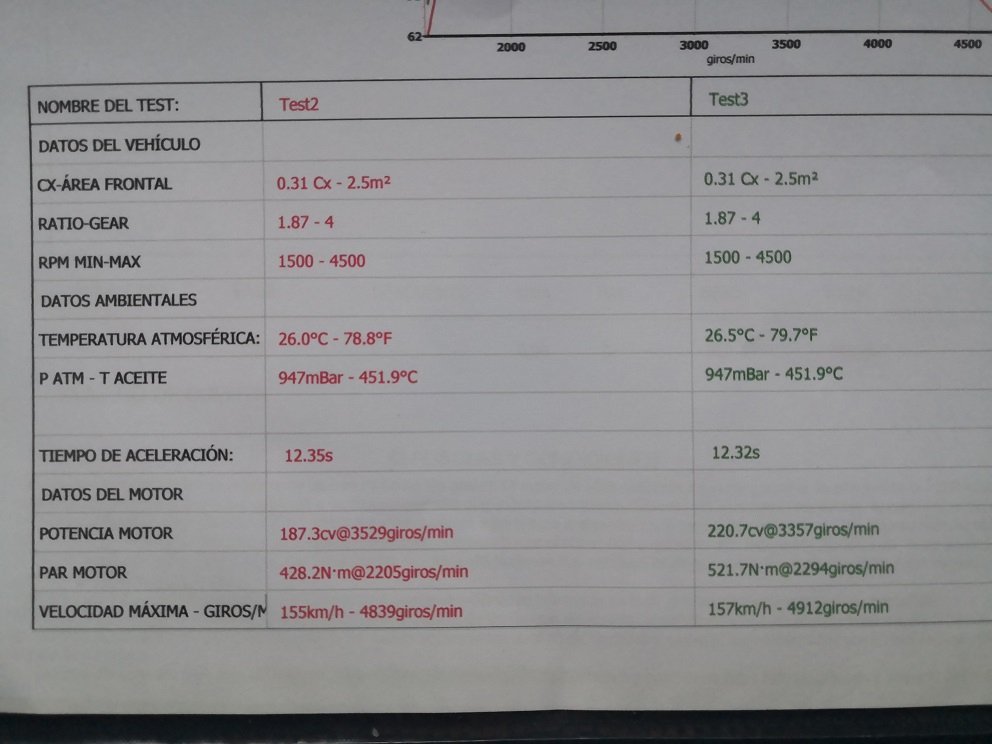 62
2000 2500 3000 3500 4000 4500
giros/min
NOMBRE DEL TEST: Test2 Test3
DATOS DEL VEHÍCULO
CX-ÁREA FRONTAL 0.31 Cx - 2.5m² 0.31 Cx - 2.5m²
RATIO-GEAR 1.87 - 4 1.87 - 4
RPM MIN-MAX 1500 - 4500 1500 - 4500
DATOS AMBIENTALES
TEMPERATURA ATMOSFÉRICA: 26.0°C - 78.8°F 26.5°C - 79.7°F
P ATM - T ACEITE 947mBar - 451.9°C 947mBar - 451.9°C
TIEMPO DE ACELERACIÓN: 12.35s 12.32s
DATOS DEL MOTOR
POTENCIA MOTOR 187.3cv@3529giros/min 220.7cv@3357giros/min
PAR MOTOR 428.2N·m@2205giros/min 521.7N·m@2294giros/min
VELOCIDAD MÁXIMA - GIROS/M 155km/h - 4839giros/min 157km/h - 4912giros/min